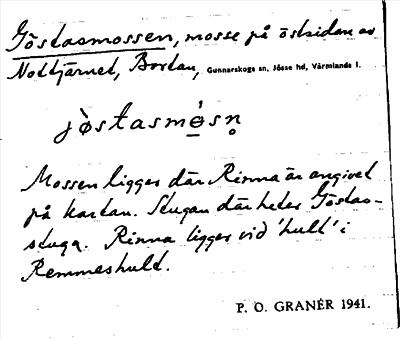 Göstasmossen, mosse på östsidan av
Nottjärnet, Bortan, Gunnarskogs sn, Jösse hd, Värmlands l.
jòstasmósn̥
Mossen ligger där Rinna är angivet
på kartan. Stugan där heter Göstas-
stuga. Rinna ligger vid 'hult' i
Remmeshult.
P. O. GRANÉR 1941.